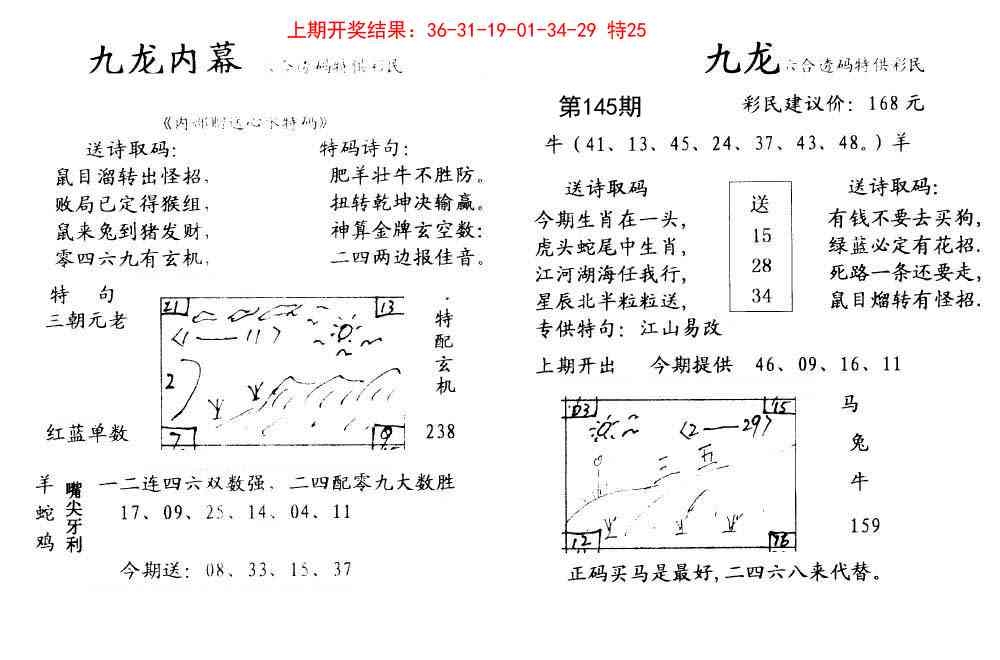 上期开奖结果：36-31-19-01-34-29 特25
九龙内幕
六合透码特供彩民
《内部赠送心水特码》
送诗取码:
鼠目溜转出怪招,
败局已定得猴组,
鼠来兔到猪发财,
零四六九有玄机,
特码诗句:
肥羊壮牛不胜防。
扭转乾坤决输赢。
神算金牌玄空数:
二四两边报佳音。
特 句
三朝元老
红蓝单数
21
13
<1——11>
2
7
9
特配玄机
238
羊
蛇
鸡
嘴尖牙利
一二连四六双数强、二四配零九大数胜
17、09、25、14、04、11
今期送: 08、33、15、37
九龙六合透码特供彩民
第145期
彩民建议价: 168元
牛（41、13、45、24、37、43、48。）羊
送诗取码
今期生肖在一头,
虎头蛇尾中生肖,
江河湖海任我行,
星辰北半粒粒送,
专供特句: 江山易改
送
15
28
34
送诗取码:
有钱不要去买狗,
绿蓝必定有花招.
死路一条还要走,
鼠目熘转有怪招.
上期开出 今期提供 46、09、16、11
03
15
<2——29>
三五
12
76
马
兔
牛
159
正码买马是最好,二四六八来代替。